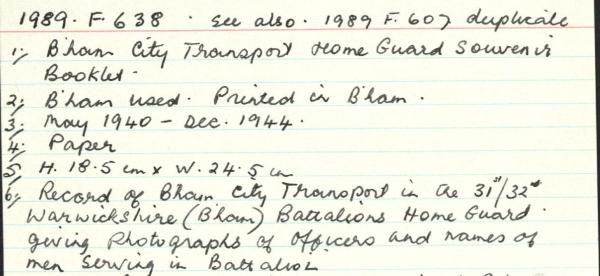 1989. F. 638 · See also. 1989 F. 607 duplicate
1; B'ham City Transport Home Guard Souvenir
Booklet.
2; B'ham used. Printed in B'ham.
3; May 1940 – Dec. 1944.
4; Paper
5; H. 18.5 cm x W. 24.5 cm
6; Record of Bham City Transport in the 31st/32nd
Warwickshire (Bham) Battalions Home Guard
giving photographs of officers and names of
men serving in Battalion